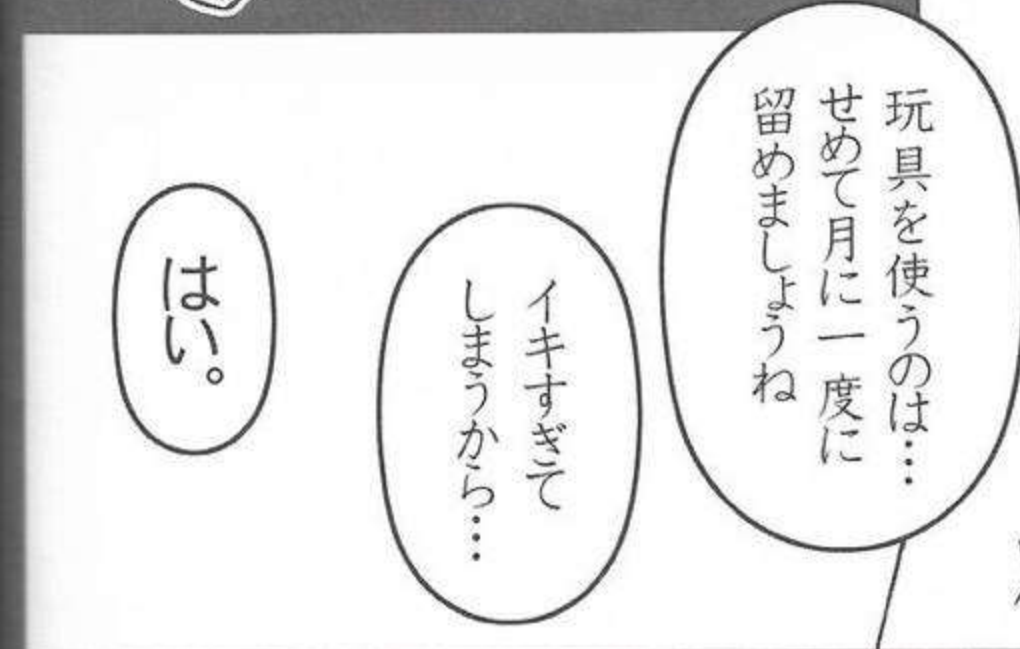 玩具を使うのは…
せめて月に一度に
留めましょうね
イキすぎて
しまうから…
はい。